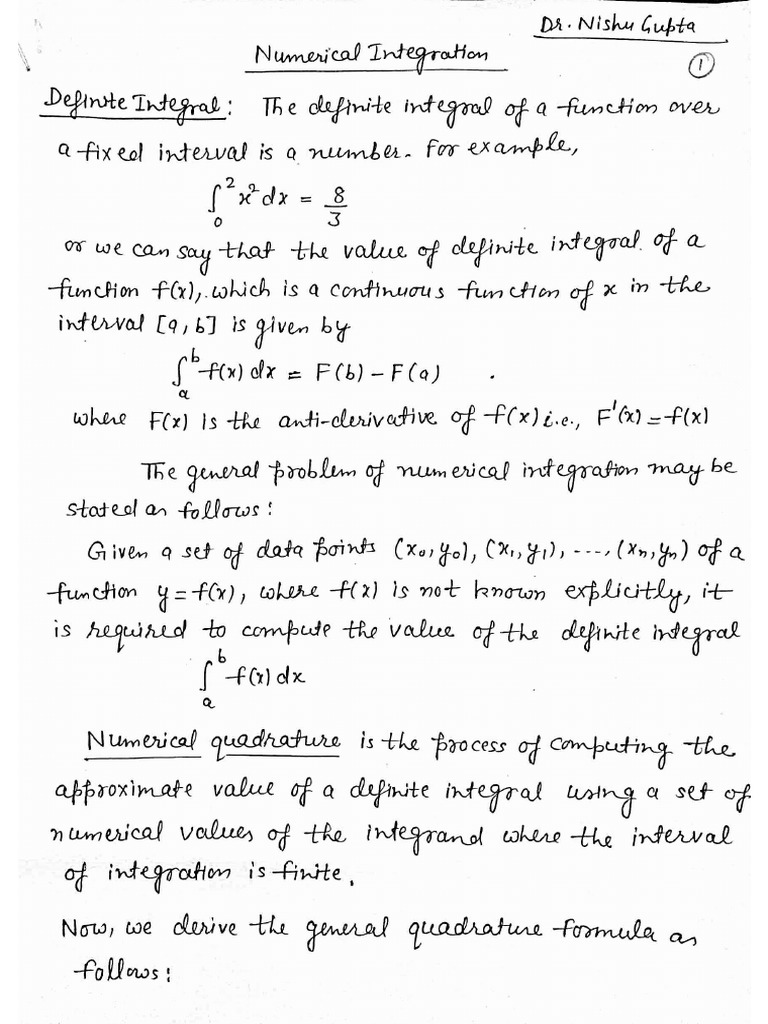 Dr. Nishu Gupta
Numerical Integration
1
Definite Integral: The definite integral of a function over
a fixed interval is a number. For example,
∫₀² x² dx = 8/3
or we can say that the value of definite integral of a
function f(x), which is a continuous function of x in the
interval [a, b] is given by
∫ₐᵇ f(x) dx = F(b) - F(a) .
where F(x) is the anti-derivative of f(x) i.e., F'(x) = f(x)
The general problem of numerical integration may be
stated as follows:
Given a set of data points (x₀, y₀), (x₁, y₁), ----, (xₙ, yₙ) of a
function y = f(x), where f(x) is not known explicitly, it
is required to compute the value of the definite integral
∫ₐᵇ f(x) dx
Numerical quadrature is the process of computing the
approximate value of a definite integral using a set of
numerical values of the integrand where the interval
of integration is finite.
Now, we derive the general quadrature formula as
follows: